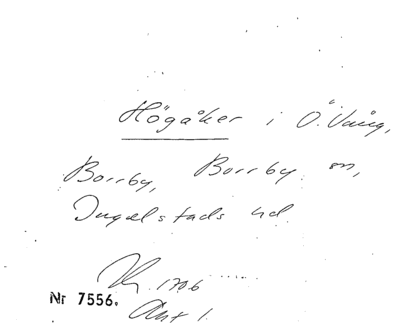 Högåker i Ö. Vång,
Borrby, Borrby sn,
Ingelstads hd.
1706
Nr 7556.
Akt 1.